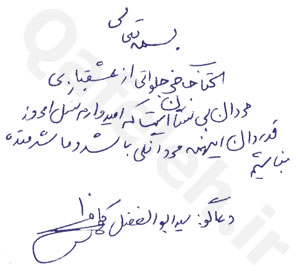 بسمه تعالی
این کتاب جلواتی از عشقبازی
مردان بی نشان است که امیدوارم نسل امروز
قدردان اینهمه مردانگی باشد و ما شرمنده
نباشیم
دعاگو: سید ابوالفضل
Qafzeh.ir